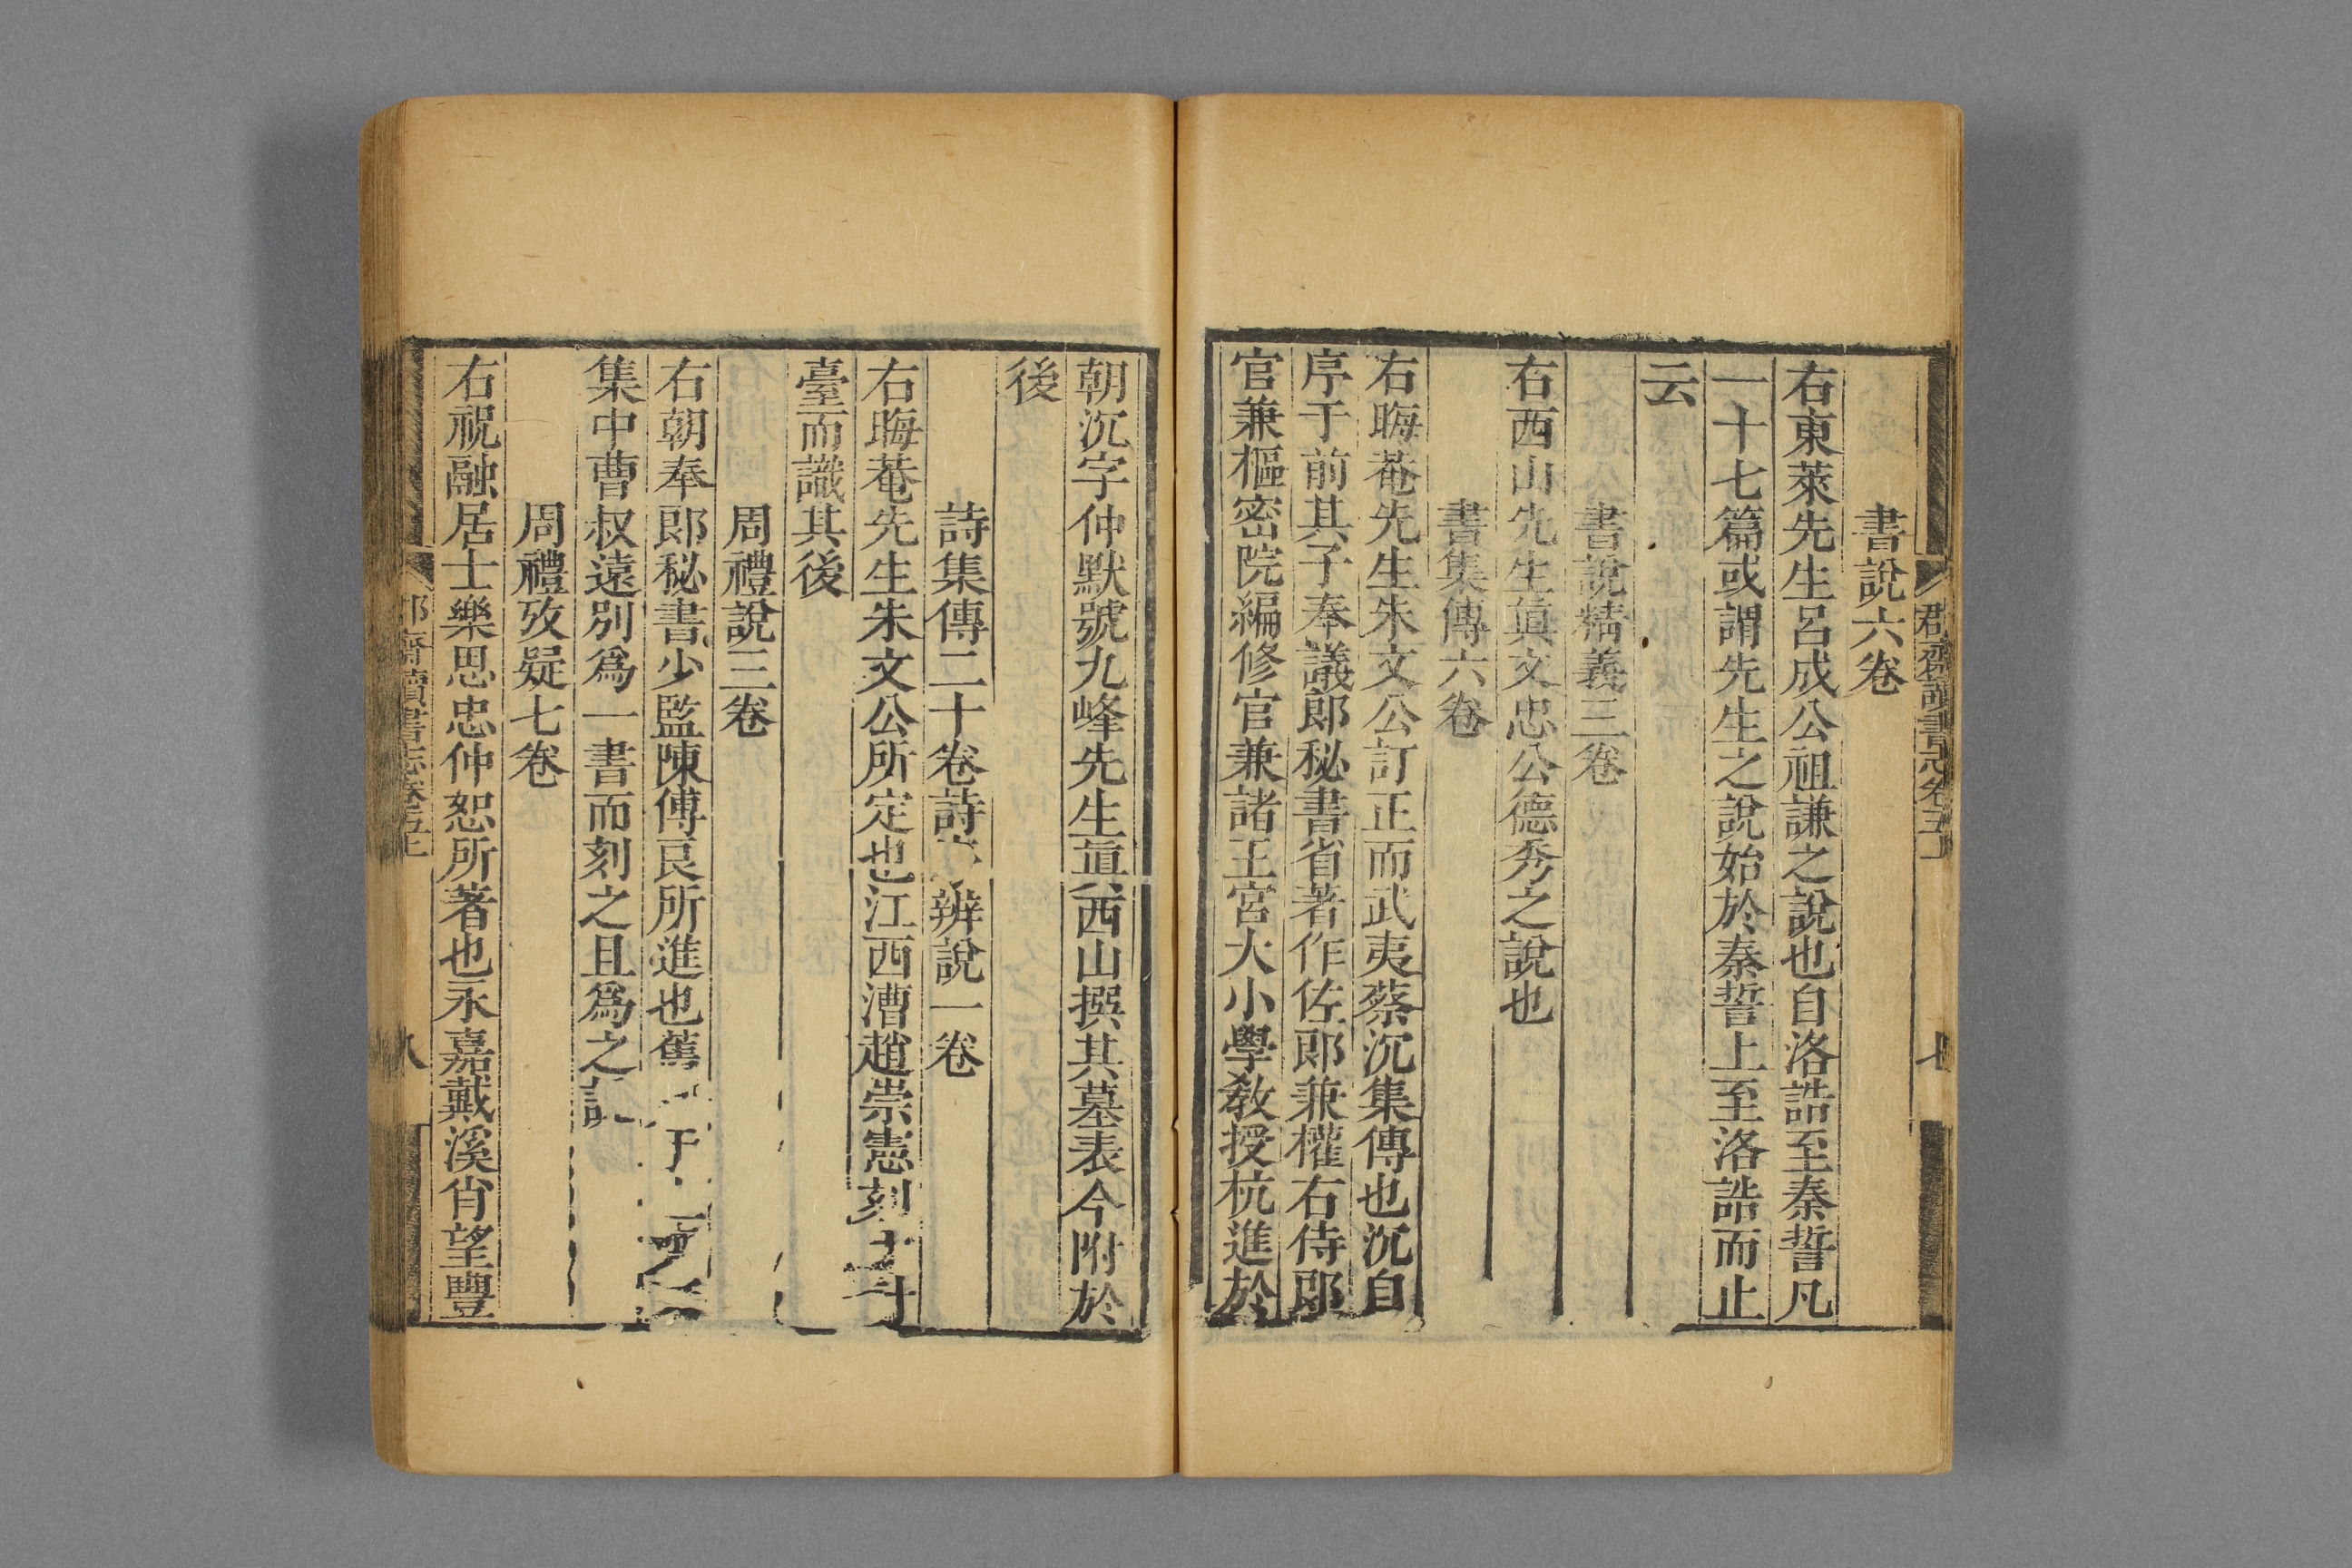 郡齋讀書志卷五上
七
書說六卷
右東萊先生呂成公祖謙之說也自洛誥至秦誓凡
一十七篇或謂先生之說始於秦誓上至洛誥而止
云
書說精義三卷
右西山先生眞文忠公德秀之說也
書集傳六卷
右晦菴先生朱文公訂正而武夷蔡沉集傳也沉自
序于前其子奉議郎秘書省著作佐郎兼權右侍郎
官兼樞密院編修官兼諸王宮大小學敎授杭進於
朝沉字仲默號九峰先生眞西山撰其墓表今附於
後
詩集傳二十卷詩辨說一卷
右晦菴先生朱文公所定也江西漕趙崇憲刻于
臺而識其後
周禮說三卷
右朝奉郎秘書少監陳傅良所進也舊
集中曹叔遠別爲一書而刻之且爲之記
周禮攷疑七卷
右祝融居士樂思忠仲恕所著也永嘉戴溪肖望豐
郡齋讀書志卷五上
八